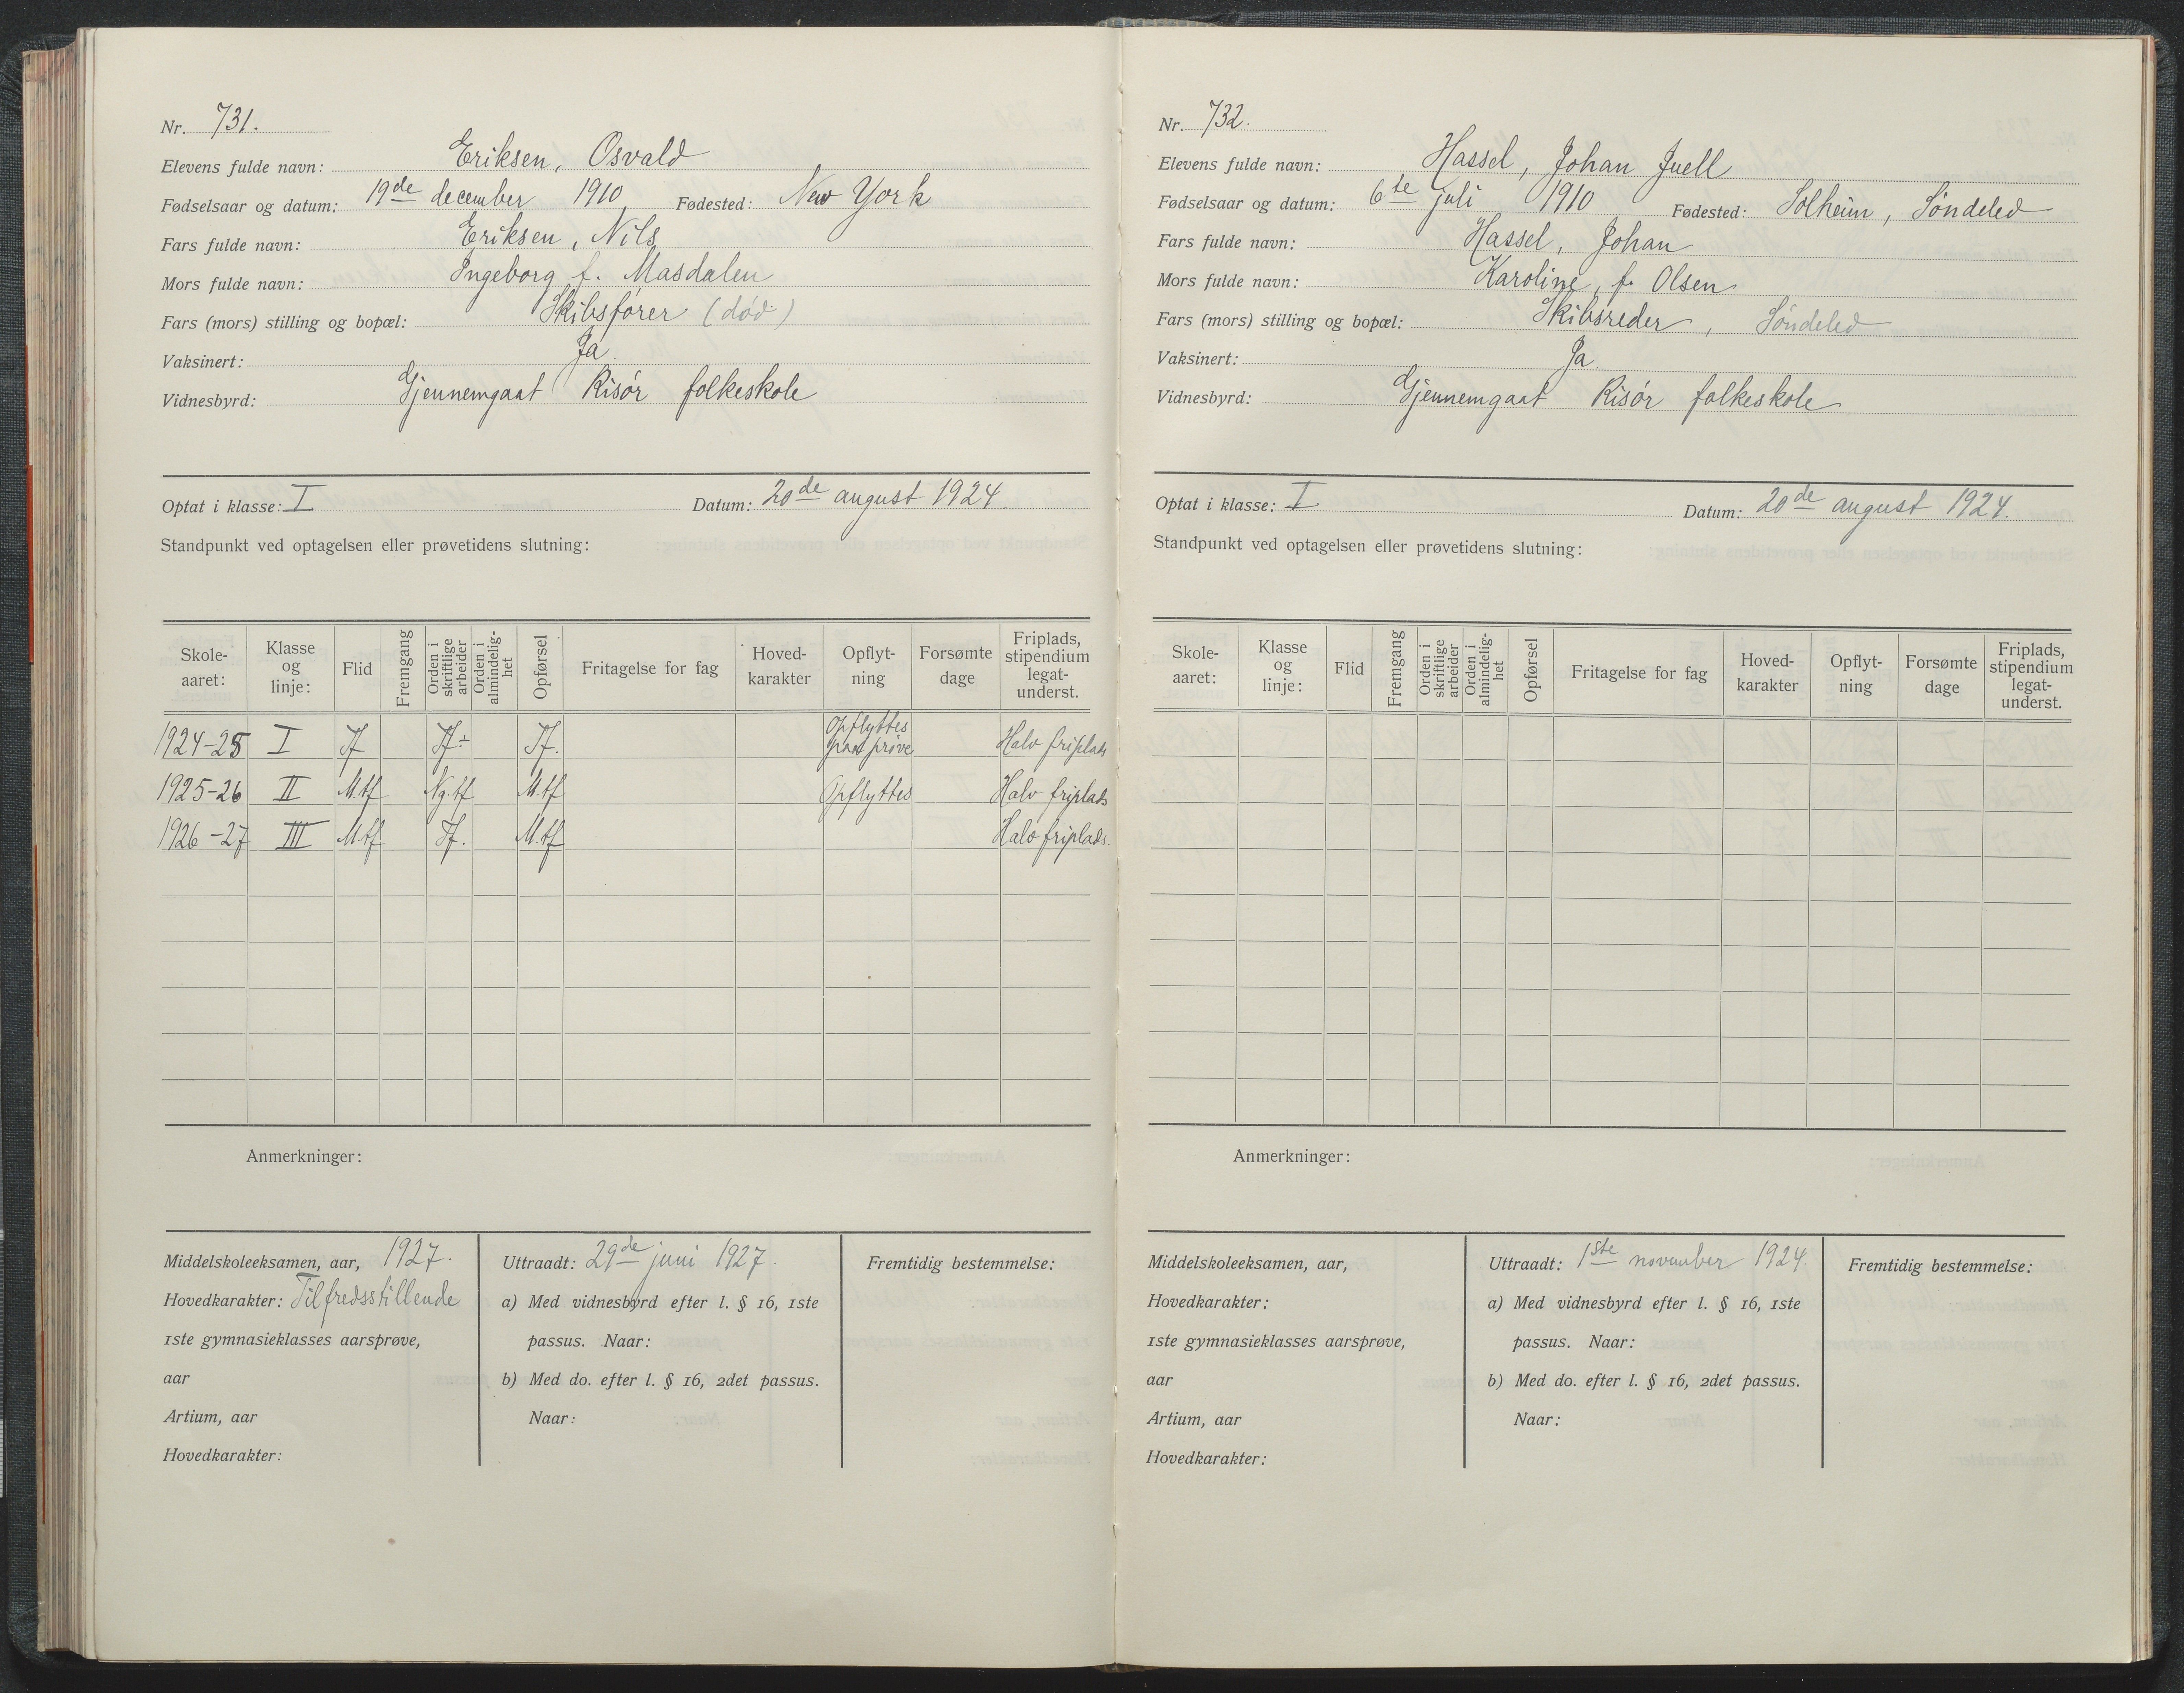 Nr. 731.
Elevens fulde navn: Eriksen, Osvald
Fødselsaar og datum: 19de december 1910 Fødested: New York
Fars fulde navn: Eriksen, Nils
Mors fulde navn: Ingeborg f. Masdalen
Fars (mors) stilling og bopæl: Skibsfører (død)
Vaksinert: Ja.
Vidnesbyrd: Gjennemgaat Risør folkeskole
Optat i klasse: I Datum: 20de august 1924.
Standpunkt ved optagelsen eller prøvetidens slutning:
Skole-aaret: Klasse og linje: Flid Fremgang Orden i skriftlige arbeider Orden i almindelig-het Opførsel Fritagelse for fag Hoved-karakter Opflyt-ning Forsømte dage Friplads, stipendium legat-underst.
1924-25 I Tf Tf÷ Tf. Opflyttes paa prøve Halv friplads
1925-26 II M.tf Ng.tf M.tf Opflyttes Halv friplads
1926-27 III M.tf Tf. M.tf Halv friplads.
Anmerkninger:
Middelskoleeksamen, aar, 1927.
Hovedkarakter: Tilfredsstillende
1ste gymnasieklasses aarsprøve,
aar
Artium, aar
Hovedkarakter:
Uttraadt: 29de juni 1927.
a) Med vidnesbyrd efter l. § 16, 1ste
passus. Naar:
b) Med do. efter l. § 16, 2det passus.
Naar:
Fremtidig bestemmelse:
Nr. 732.
Elevens fulde navn: Hassel, Johan Juell
Fødselsaar og datum: 6te juli 1910 Fødested: Solheim, Søndeled
Fars fulde navn: Hassel, Johan
Mors fulde navn: Karoline, f. Olsen
Fars (mors) stilling og bopæl: Skibsreder, Søndeled
Vaksinert: Ja
Vidnesbyrd: Gjennemgaat Risør folkeskole
Optat i klasse: I Datum: 20de august 1924.
Standpunkt ved optagelsen eller prøvetidens slutning:
Skole-aaret: Klasse og linje: Flid Fremgang Orden i skriftlige arbeider Orden i almindelig-het Opførsel Fritagelse for fag Hoved-karakter Opflyt-ning Forsømte dage Friplads, stipendium legat-underst.
Anmerkninger:
Middelskoleeksamen, aar,
Hovedkarakter:
1ste gymnasieklasses aarsprøve,
aar
Artium, aar
Hovedkarakter:
Uttraadt: 1ste november 1924.
a) Med vidnesbyrd efter l. § 16, 1ste
passus. Naar:
b) Med do. efter l. § 16, 2det passus.
Naar:
Fremtidig bestemmelse: